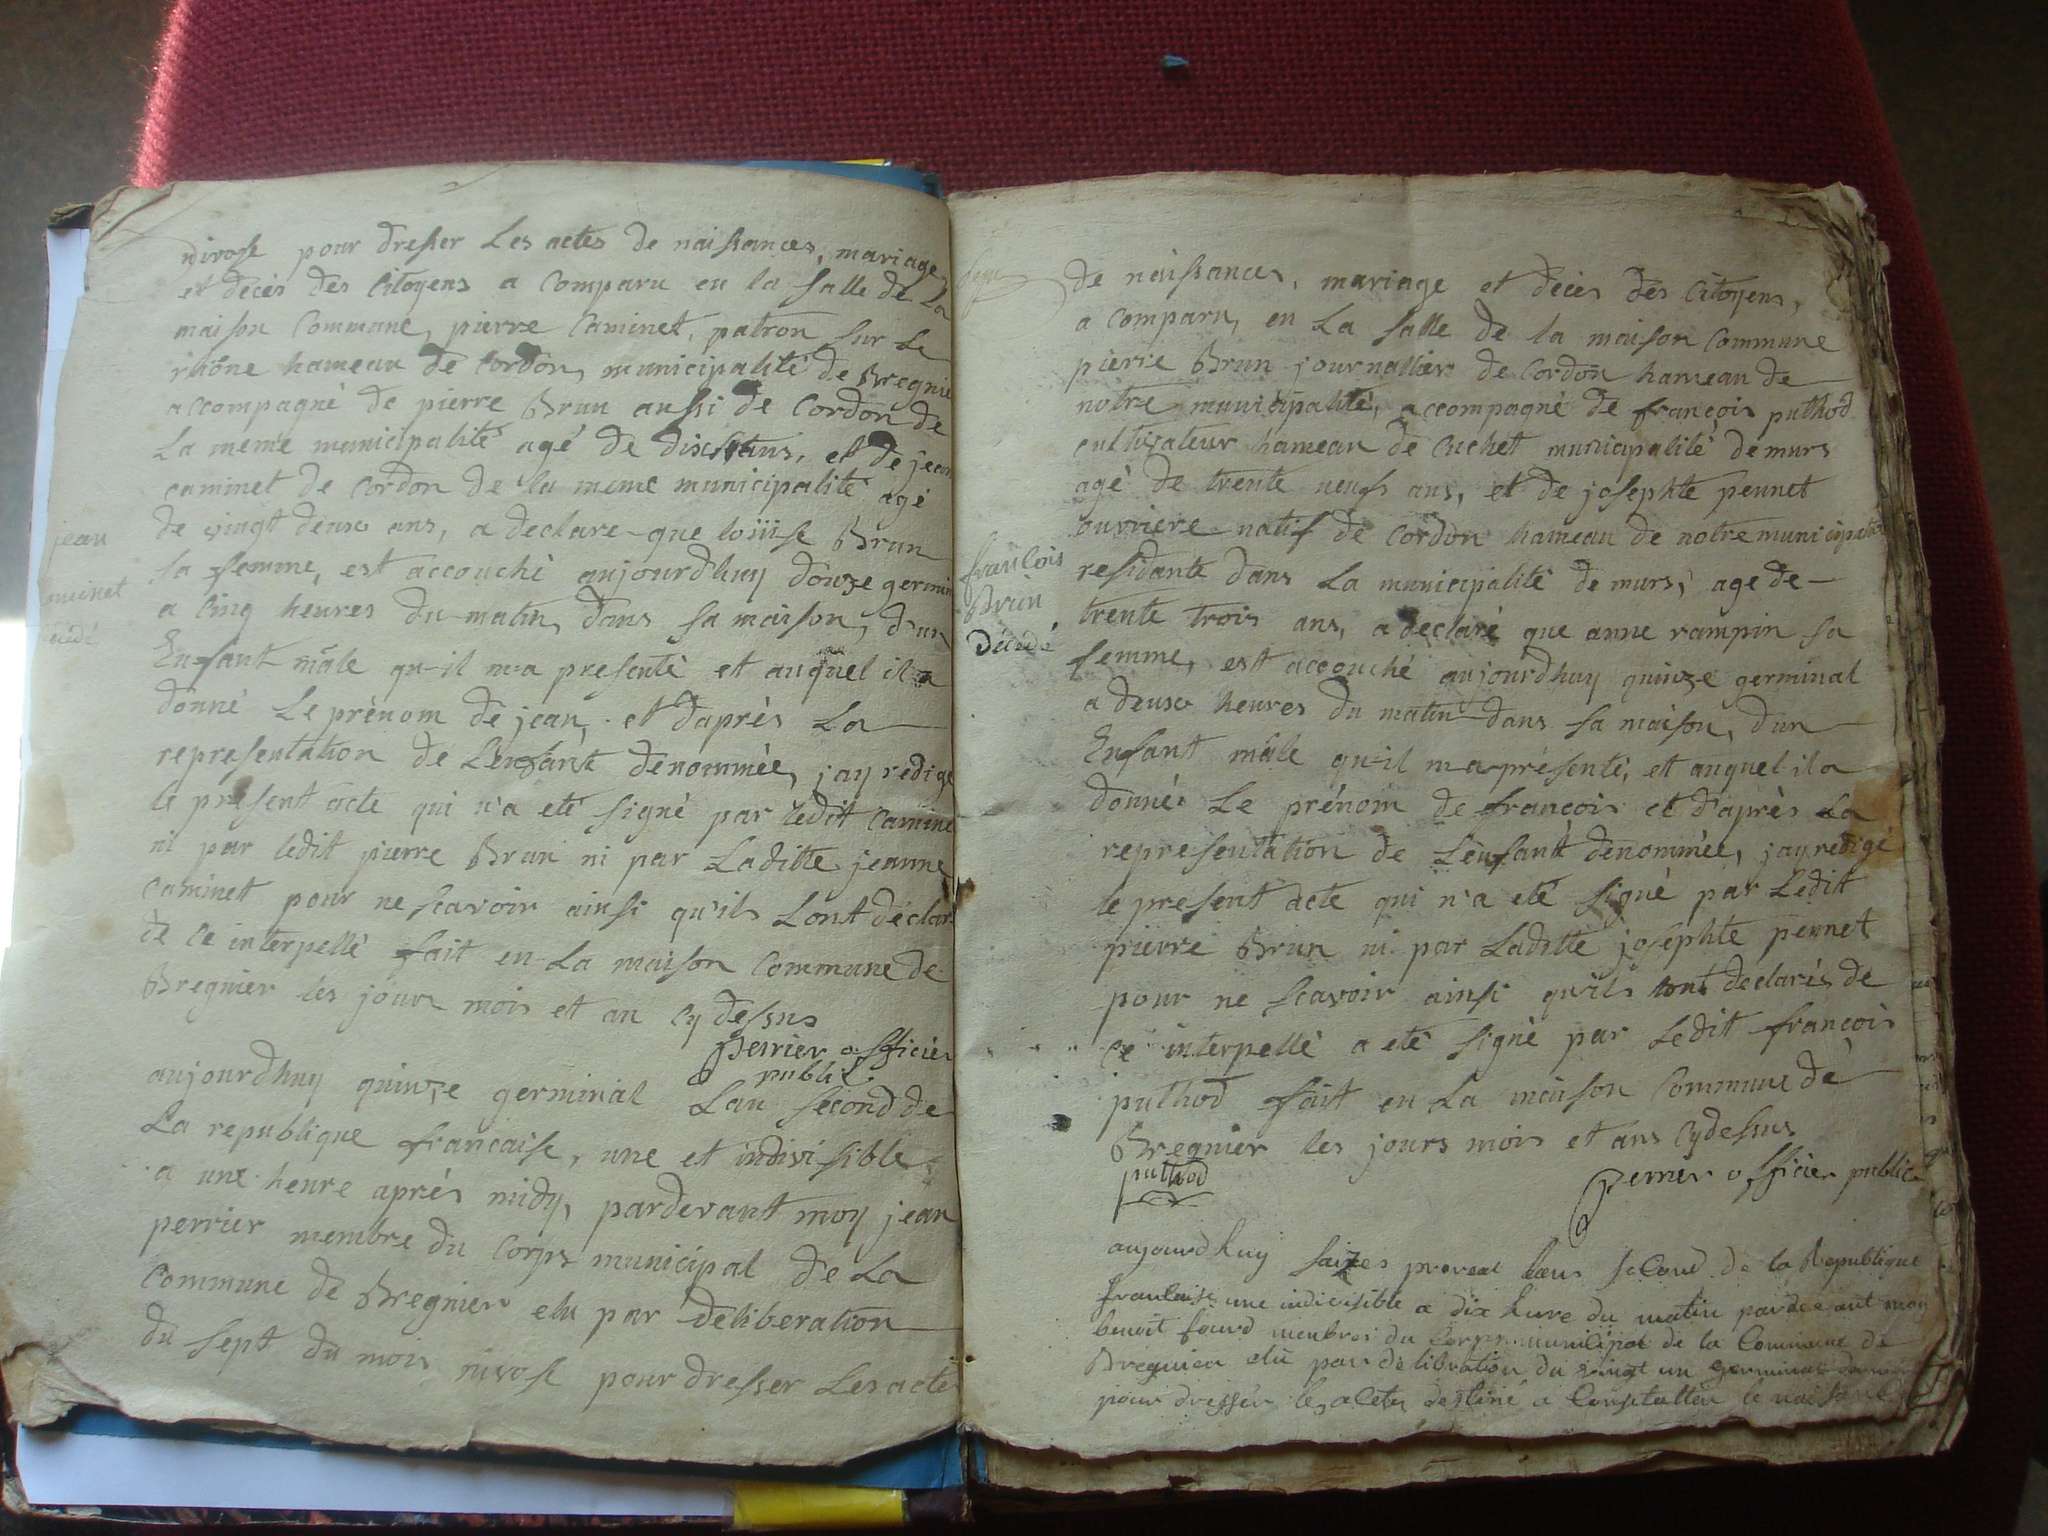 nivose pour dresser Les actes de naissances, mariage
et décès des Citoyens a Comparu en la salle de la
maison Commune, pierre Caminet, patron sur Le
rhône hameau de Cordon, municipalité de Bregnie
accompagné de pierre Brun aussi de Cordon de
La meme municipalité agé de dix ans, et de jean
caminet de Cordon de la meme municipalité agé
de vingt deux ans, a declare que loüise Brun
jean
sa femme, est accouché aujourdhuy douze germin
aminet
a Cinq heures du matin, dans sa maison, d'un
écédé
Enfant mâle qu-il m-a presenté et auquel il a
donné Le prénom de jean, et daprès La
representation de L'enfant dénommée, jay redigé
le present acte qui n'a eté signé par ledit Camine
ni par ledit pierre Brun ni par Laditte jeanne
Caminet pour ne scavoir ainsi qu'ils Lont déclar
de Ce interpellé fait en La maison Commune de
Bregnier les jours mois et an Cy dessus
perrier officier
public
aujourdhuy quinze germinal Lan second de
La republique francaise, une et indivisible
a une heure aprés midy, pardevant moy jean
perrier membre du Corps municipal de La
Commune de Bregnier elu par deliberation
du sept du mois nivose pour dresser Les acte
de naissances, mariage et décès des Citoyens,
a Comparu, en La salle de la maison Commune
pierre Brun journallier de Cordon hameau de
notre municipalité, accompagné de françois puthod
cultivateur hameau de Cuchet municipalité de murs
agé de trente neufs ans, et de josephte pennet
ouvriere natif de Cordon hameau de notre municipalité
françois
residante dans La municipalité de murs, age de
Brun
trente trois ans, a declaré que anne rampin sa
Décédé
femme, est accouché aujourdhuy quinze germinal
a deux heures du matin dans sa maison, d'un
Enfant mâle qu-il m-a présenté, et auquel il a
donné Le prénom de françois et d'après La
representation de L'enfant dénommée, jay redigé
le present acte qui n'a eté signé par Ledit
pierre Brun ni par Laditte josephte pennet
pour ne scavoir ainsi qu'ils Lont declarés de
Ce interpellé a eté signé par Ledit françois
puthod fait en La maison Commune de
Bregnier les jours mois et ans Cydessus
puthod
perrier officier public
aujourdhuy saizes prereal second de la Republique
francaise une indivisible a dix hure du matin pardevant moy
benoit membres du Corps municipal de la Commune de
Bregnier elu par delibration du vingt un germinal
pour dresser les actes destiné a Constatter le naissance